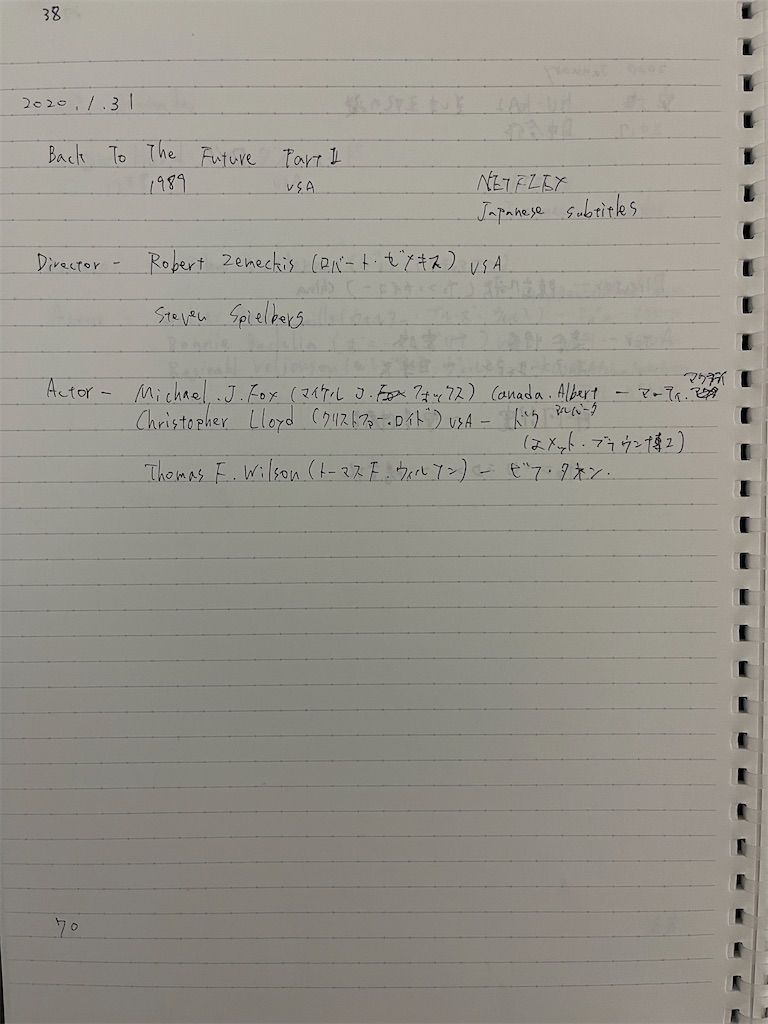 38
2020.1.31
Back To The Future Part II
1989 USA NETFLEX
Japanese subtitles
Director - Robert Zemeckis (ロバート・ゼメキス) USA
Steven Spielberg
Actor - Michael.J.Fox (マイケル J. フォックス) Canada.Albert - マーティ.マクフライ
アルバータ
Christopher Lloyd (クリストファー・ロイド) USA - ドク
(エメット・ブラウン博士)
Thomas F. Wilson (トーマス F. ウィルソン) - ビフ・タネン.
70